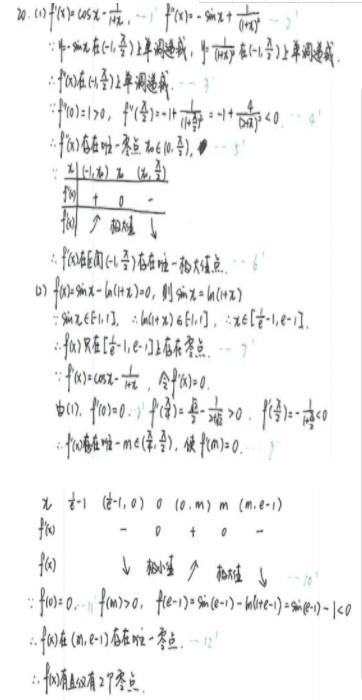 20. (1) f'(x)=cosx-1/(1+x), --1' f''(x)=-sinx+1/(1+x)² --2'
∵ y=-sinx在(-1,π/2)上单调递减, y=1/(1+x)²在(-1,π/2)上单调递减
∴ f''(x)在(-1,π/2)上单调递减. --3'
∵ f''(0)=1>0, f''(π/2)=-1+1/(1+π/2)²=-1+4/(2+π)²<0. --4'
∴ f''(x)存在唯一零点 x₀∈(0,π/2), --5'
∵
x (-1,x₀) x₀ (x₀,π/2)
f''(x) + 0 -
f'(x) ↗ 极大值 ↓
∴ f'(x)在区间(-1,π/2)存在唯一极大值点. --6'
(2) f(x)=sinx-ln(1+x)=0, 则sinx=ln(1+x)
∵ sinx∈[-1,1], ∴ ln(1+x)∈[-1,1], ∴ x∈[1/e-1,e-1].
∴ f(x)只在[1/e-1,e-1]上存在零点. --7'
∵ f'(x)=cosx-1/(1+x), 令f'(x)=0.
由(1), f'(0)=0. f'(π/4)=√2/2-1/(1+π/4)>0. f'(π/2)=-1/(1+π/2)<0
∴ f'(x)存在唯一m∈(π/4,π/2), 使f'(m)=0. --9'
x 1/e-1 (1/e-1,0) 0 (0,m) m (m,e-1)
f'(x) - 0 + 0 -
f(x) ↓ 极小值 ↗ 极大值 ↓ --10'
∵ f(0)=0, --11' f(m)>0, f(e-1)=sin(e-1)-ln(1+e-1)=sin(e-1)-1<0
∴ f(x)在(m,e-1)存在唯一零点. --12'
∴ f(x)有且仅有2个零点.